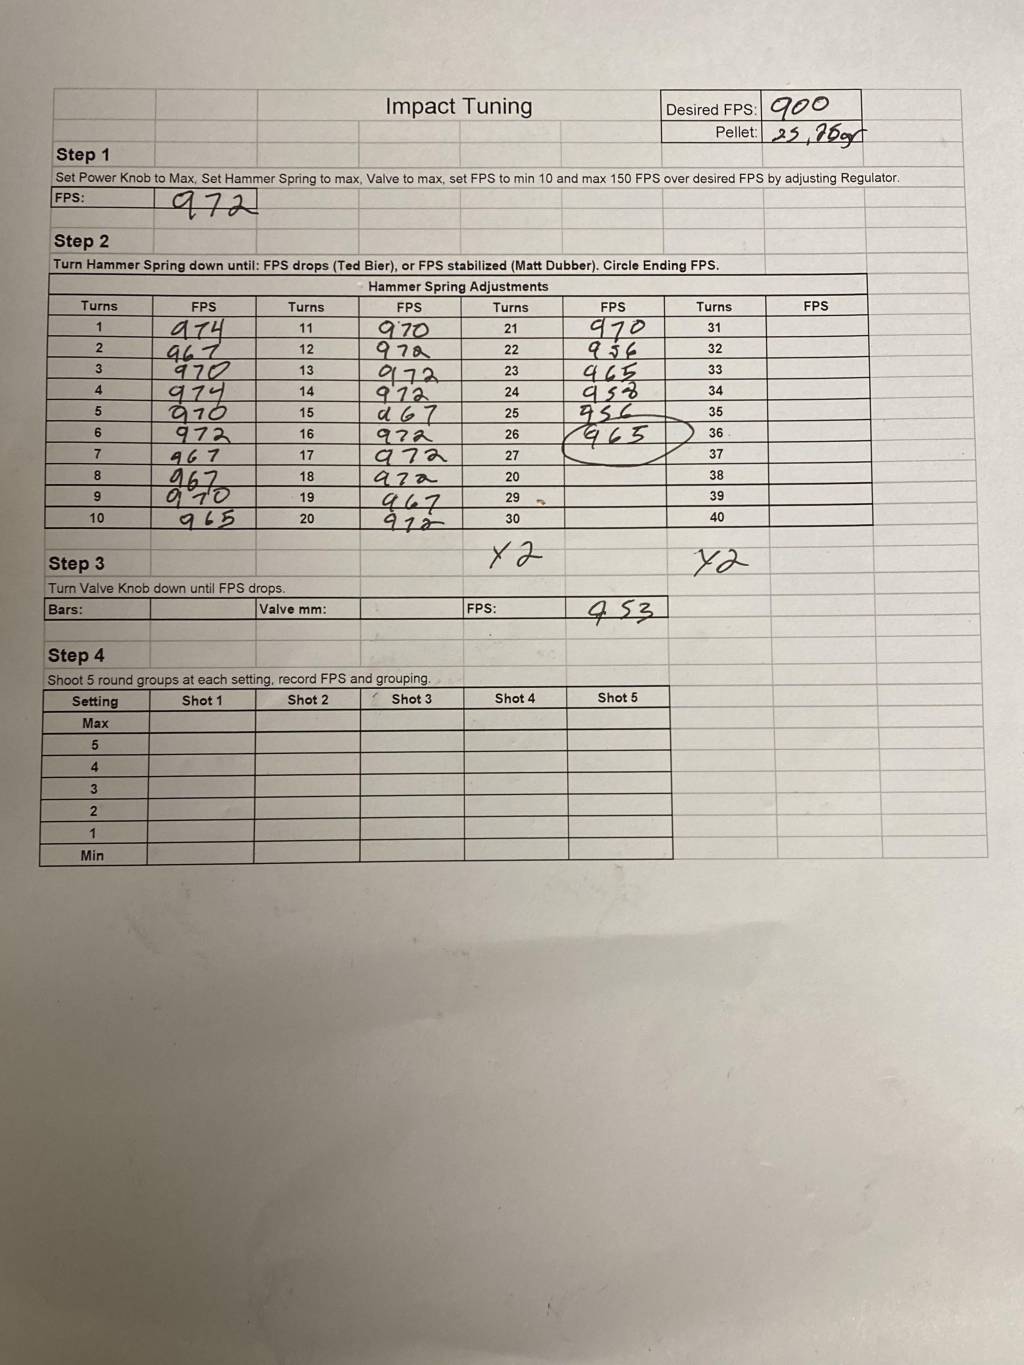 Impact Tuning Desired FPS: 900
Pellet: 25,
Step 1
Set Power Knob to Max, Set Hammer Spring to max, Valve to max, set FPS to min 10 and max 150 FPS over desired FPS by adjusting Regulator.
FPS: 972
Step 2
Turn Hammer Spring down until: FPS drops (Ted Bier), or FPS stabilized (Matt Dubber). Circle Ending FPS.
Hammer Spring Adjustments
Turns FPS Turns FPS Turns FPS Turns FPS
1 974 11 970 21 970 31
2 967 12 972 22 956 32
3 970 13 972 23 965 33
4 974 14 972 24 958 34
5 970 15 967 25 956 35
6 972 16 972 26 965 36
7 967 17 972 27 37
8 967 18 972 20 38
9 970 19 967 29 39
10 965 20 972 30 40
Step 3 X2 X2
Turn Valve Knob down until FPS drops.
Bars: Valve mm: FPS: 953
Step 4
Shoot 5 round groups at each setting, record FPS and grouping.
Setting Shot 1 Shot 2 Shot 3 Shot 4 Shot 5
Max
5
4
3
2
1
Min